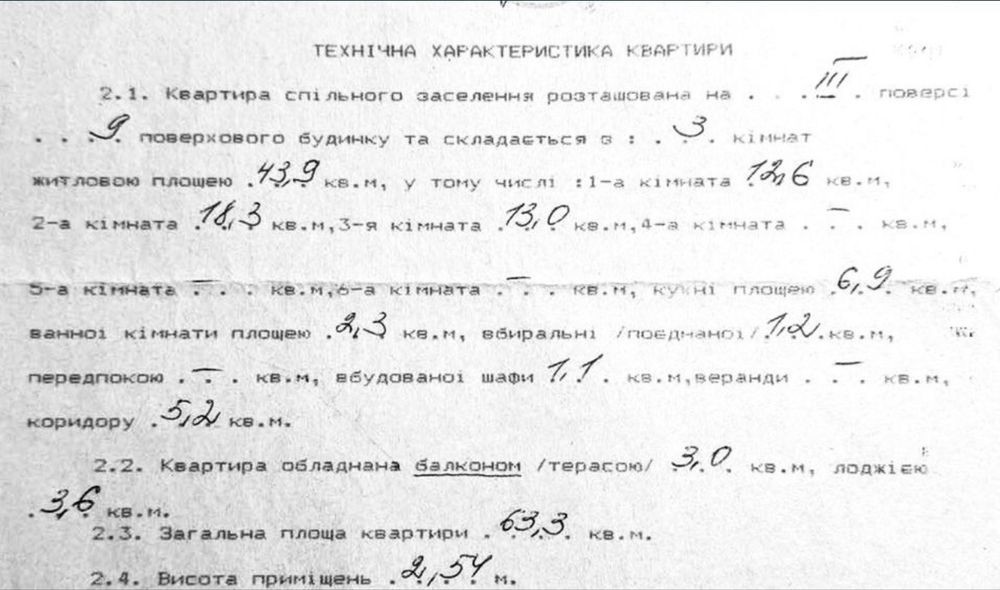 ТЕХНІЧНА ХАРАКТЕРИСТИКА КВАРТИРИ
2.1. Квартира спільного заселення розташована на . . . III . поверсі
. . . 9 поверхового будинку та складається з : . 3 . кімнат
житловою площею . 43,9 кв.м, у тому числі :1-а кімната 12,6 кв.м,
2-а кімната 18,3 кв.м,3-я кімната . 13,0 кв.м,4-а кімната . – . кв.м,
5-а кімната . – . кв.м,6-а кімната . – . кв.м, кухні площею . 6,9 . кв.м,
ванної кімнати площею . 2,3 кв.м, вбиральні /поєднаної/ 1,2 .кв.м,
передпокою . – . кв.м, вбудованої шафи 1,1 . кв.м,веранди . – . кв.м,
коридору . 5,2 кв.м.
2.2. Квартира обладнана балконом /терасою/ 3,0 . кв.м, лоджією
. 3,6 кв.м.
2.3. Загальна площа квартири . 63,3 . кв.м.
2.4. Висота приміщень . 2,54 . м.